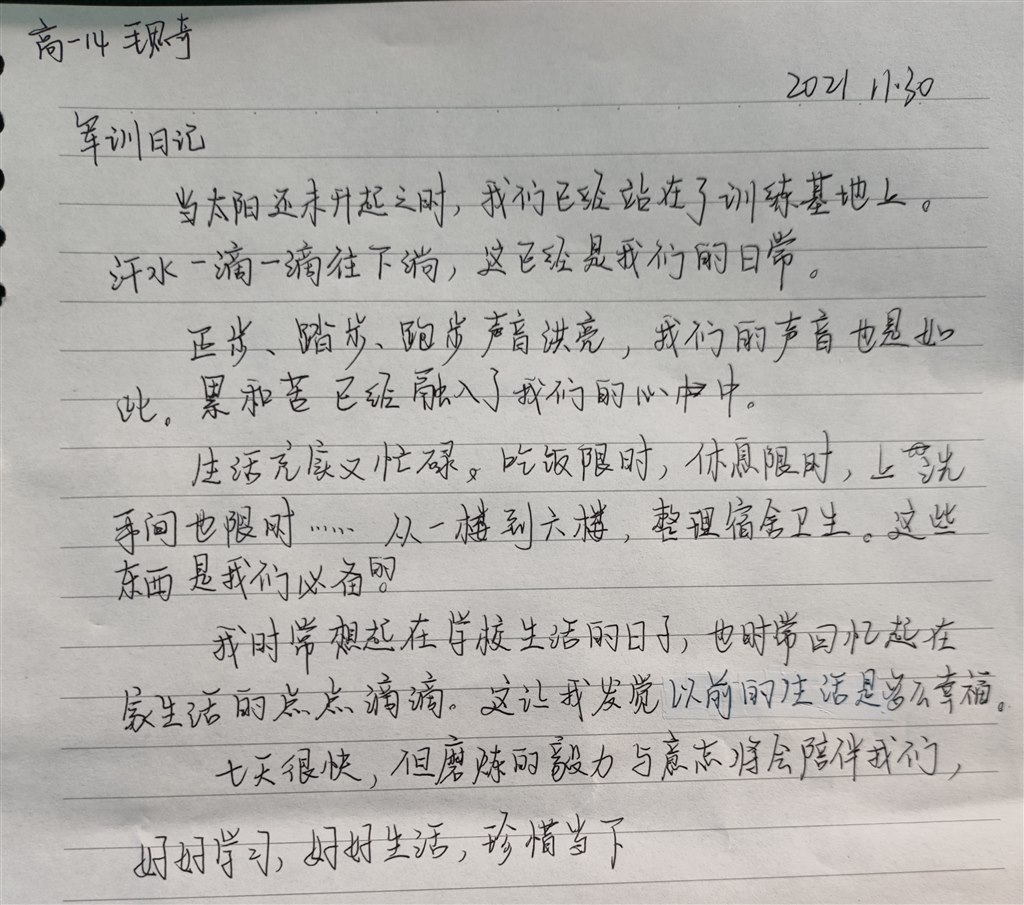 高一14 王思奇
2021 11.30
军训日记
当太阳还未升起之时，我们已经站在了训练基地上。
汗水一滴一滴往下淌，这已经是我们的日常。
正步、踏步、跑步声音洪亮，我们的声音也是如
此。累和苦已经融入了我们的心中。
生活充实又忙碌。吃饭限时，休息限时，上洗
手间也限时……从一楼到六楼，整理宿舍卫生。这些
东西是我们必备的。
我时常想起在学校生活的日子，也时常回忆起在
家生活的点点滴滴。这让我发觉以前的生活是多么幸福。
七天很快，但磨炼的毅力与意志将会陪伴我们，
好好学习，好好生活，珍惜当下